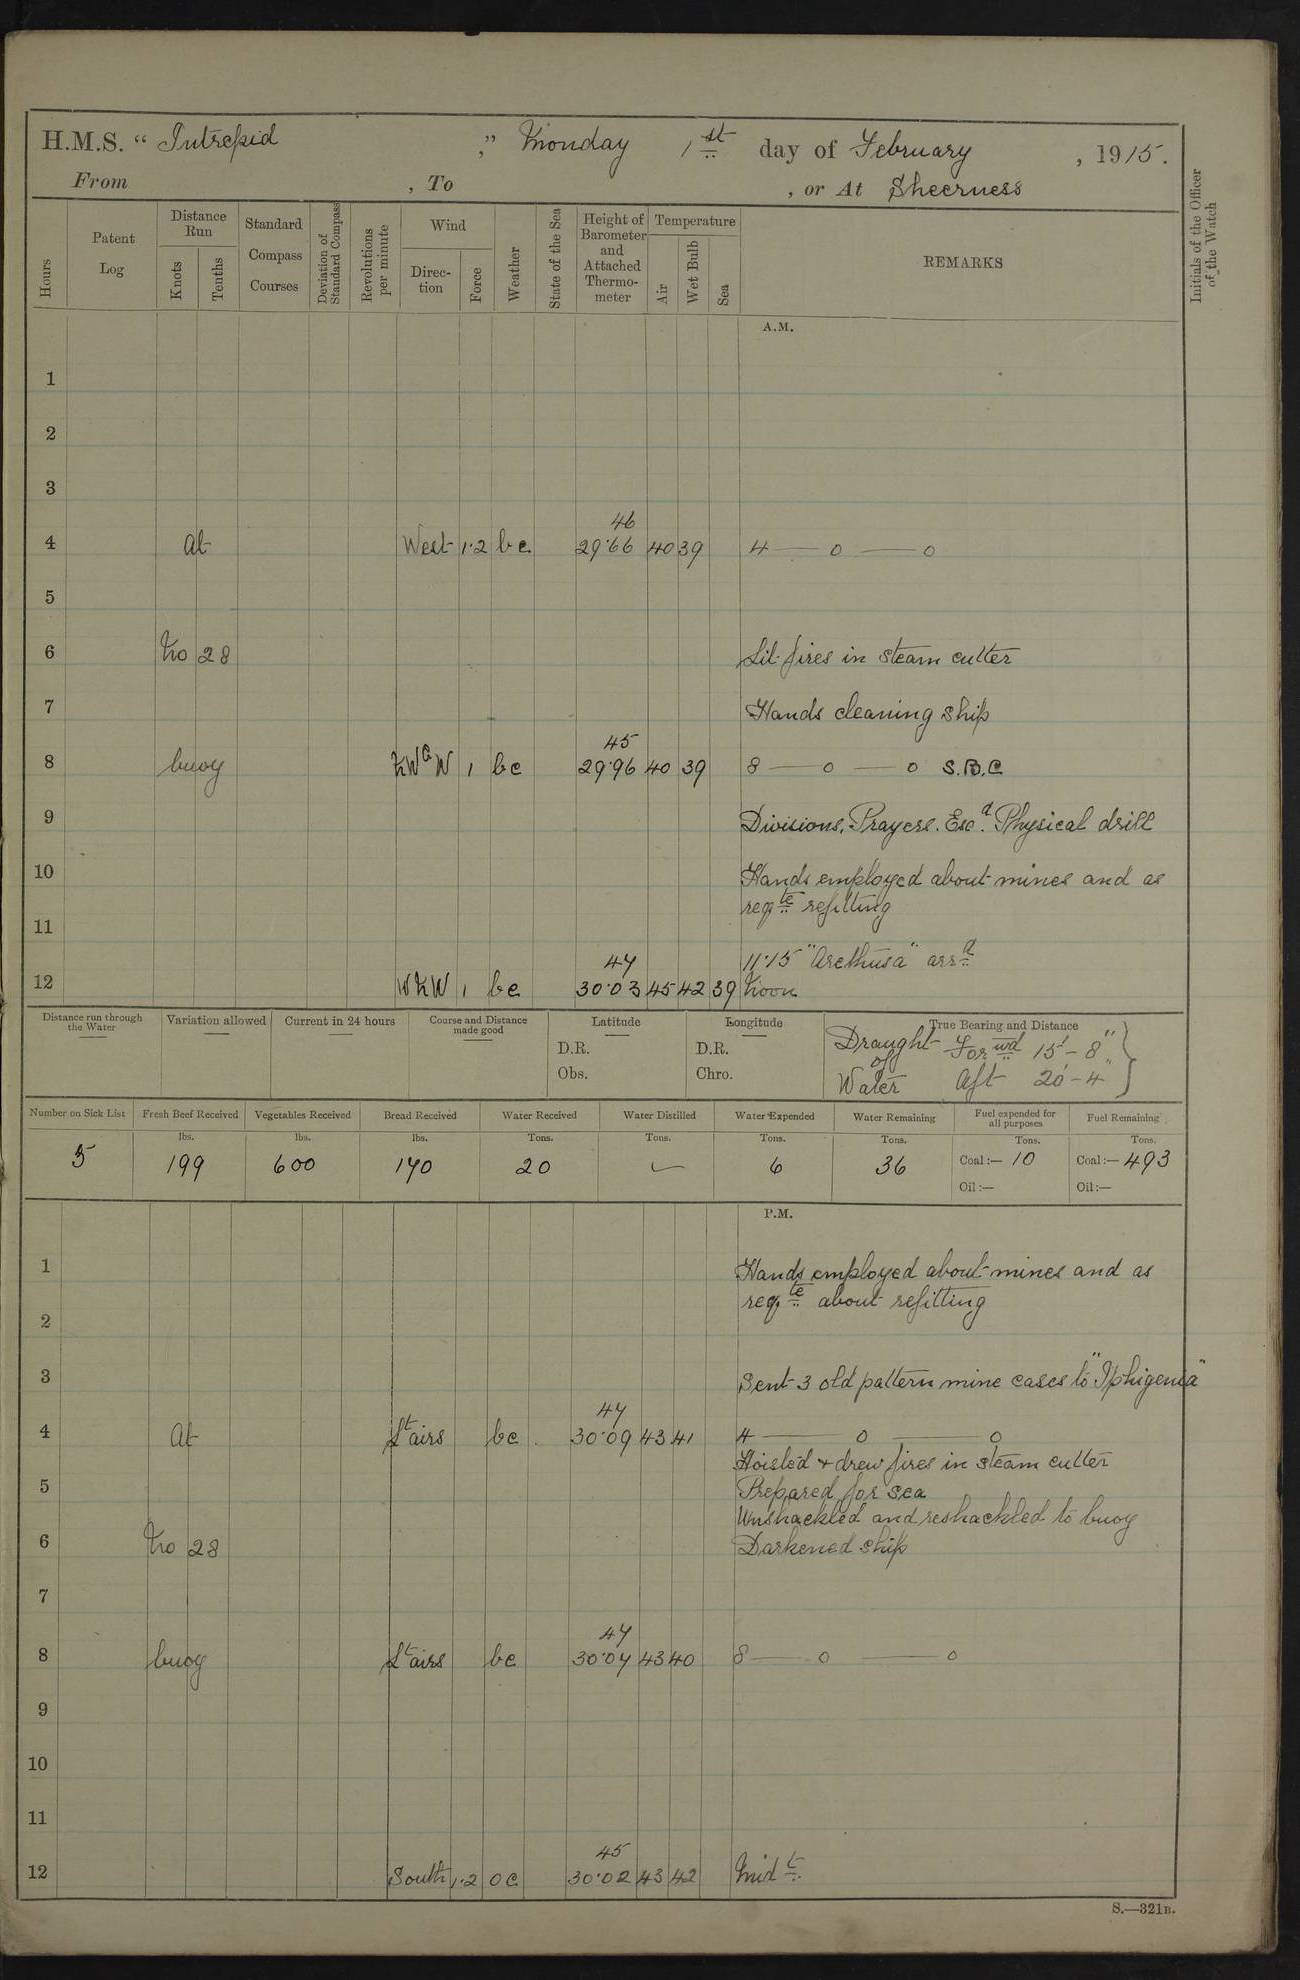 H.M.S. “ Intrepid ,” Monday 1st day of February , 1915.
From , To , or At Sheerness
Hours
Patent Log
Distance Run
Knots
Tenths
Standard Compass Courses
Deviation of Standard Compass
Revolutions per minute
Wind
Direc-tion
Force
Weather
State of the Sea
Height of Barometer and Attached Thermo-meter
Temperature
Air
Wet Bulb
Sea
REMARKS
Initials of the Officer of the Watch
A.M.
1
2
3
46
4 At West 1·2 bc 29·66 40 39 4 — o — o
5
6 No 28 Lit fires in steam cutter
7 Hands cleaning ship
45
8 buoy NWbW 1 bc 29·96 40 39 8 — o — o S.B.C
9 Divisions, Prayers. Esc.d Physical drill
10 Hands employed about mines and as
reqte refitting
11
47 11·15 "Arethusa" arrd
12 WNW 1 bc 30·03 45 42 39 Noon
Distance run through the Water
Variation allowed
Current in 24 hours
Course and Distance made good
Latitude
D.R.
Obs.
Longitude
D.R.
Chro.
True Bearing and Distance
Draught of Water
Forwd 15'-8"
Aft 20'-4"
Number on Sick List
Fresh Beef Received
Vegetables Received
Bread Received
Water Received
Water Distilled
Water Expended
Water Remaining
Fuel expended for all purposes
Fuel Remaining
lbs. lbs. lbs. Tons. Tons. Tons. Tons. Tons. Tons.
5 199 600 170 20 6 36 Coal:— 10 Coal:— 493
Oil:— Oil:—
P.M.
1 Hands employed about mines and as
reqte about refitting
2
3 Sent 3 old pattern mine cases to "Iphigenia"
47
4 At Lt airs bc 30·09 43 41 4 — o — o
Hoisted & drew fires in steam cutter
5 Prepared for sea
Unshackled and reshackled to buoy
6 No 28 Darkened ship
7
47
8 buoy Lt airs bc 30·07 43 40 8 — o — o
9
10
11
45
12 South 1·2 oc 30·02 43 42 Midt
S.—321B.